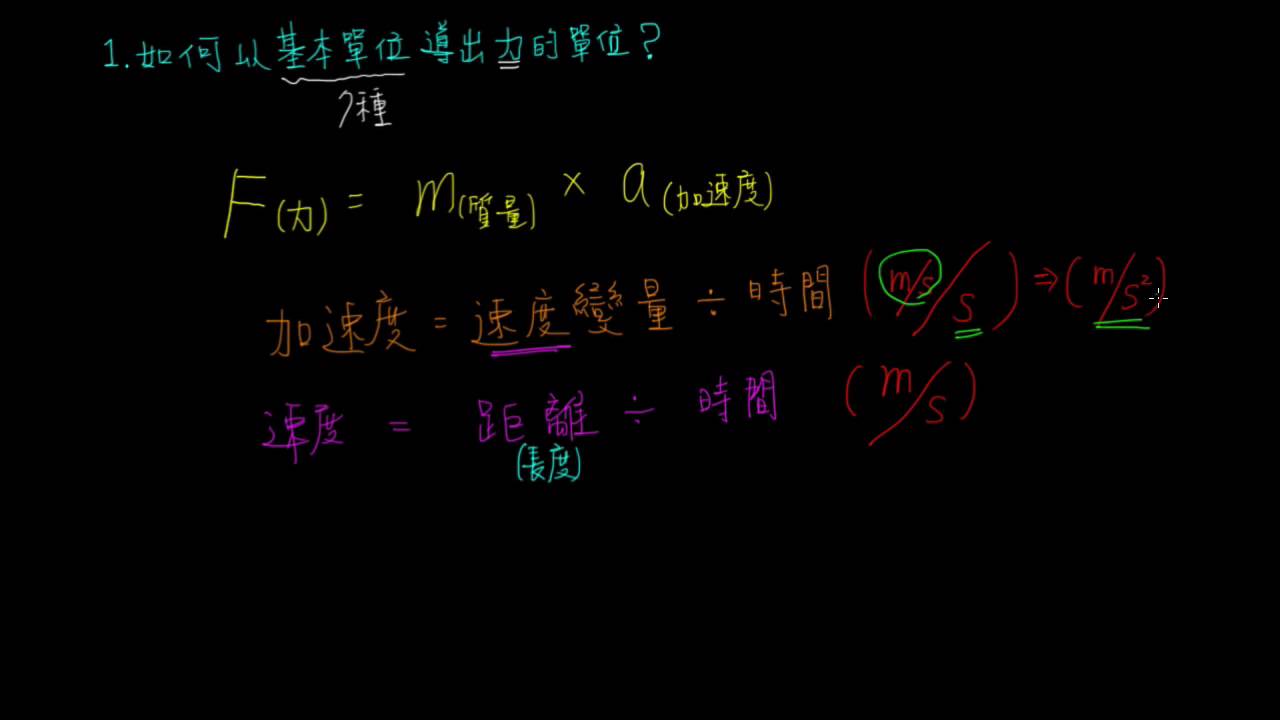 1.如何以基本單位導出力的單位?
7種
F(力) = m(質量) × a(加速度)
加速度 = 速度變量 ÷ 時間 (m/s/s) ⇒ (m/s²)
速度 = 距離 ÷ 時間 (m/s)
(長度)